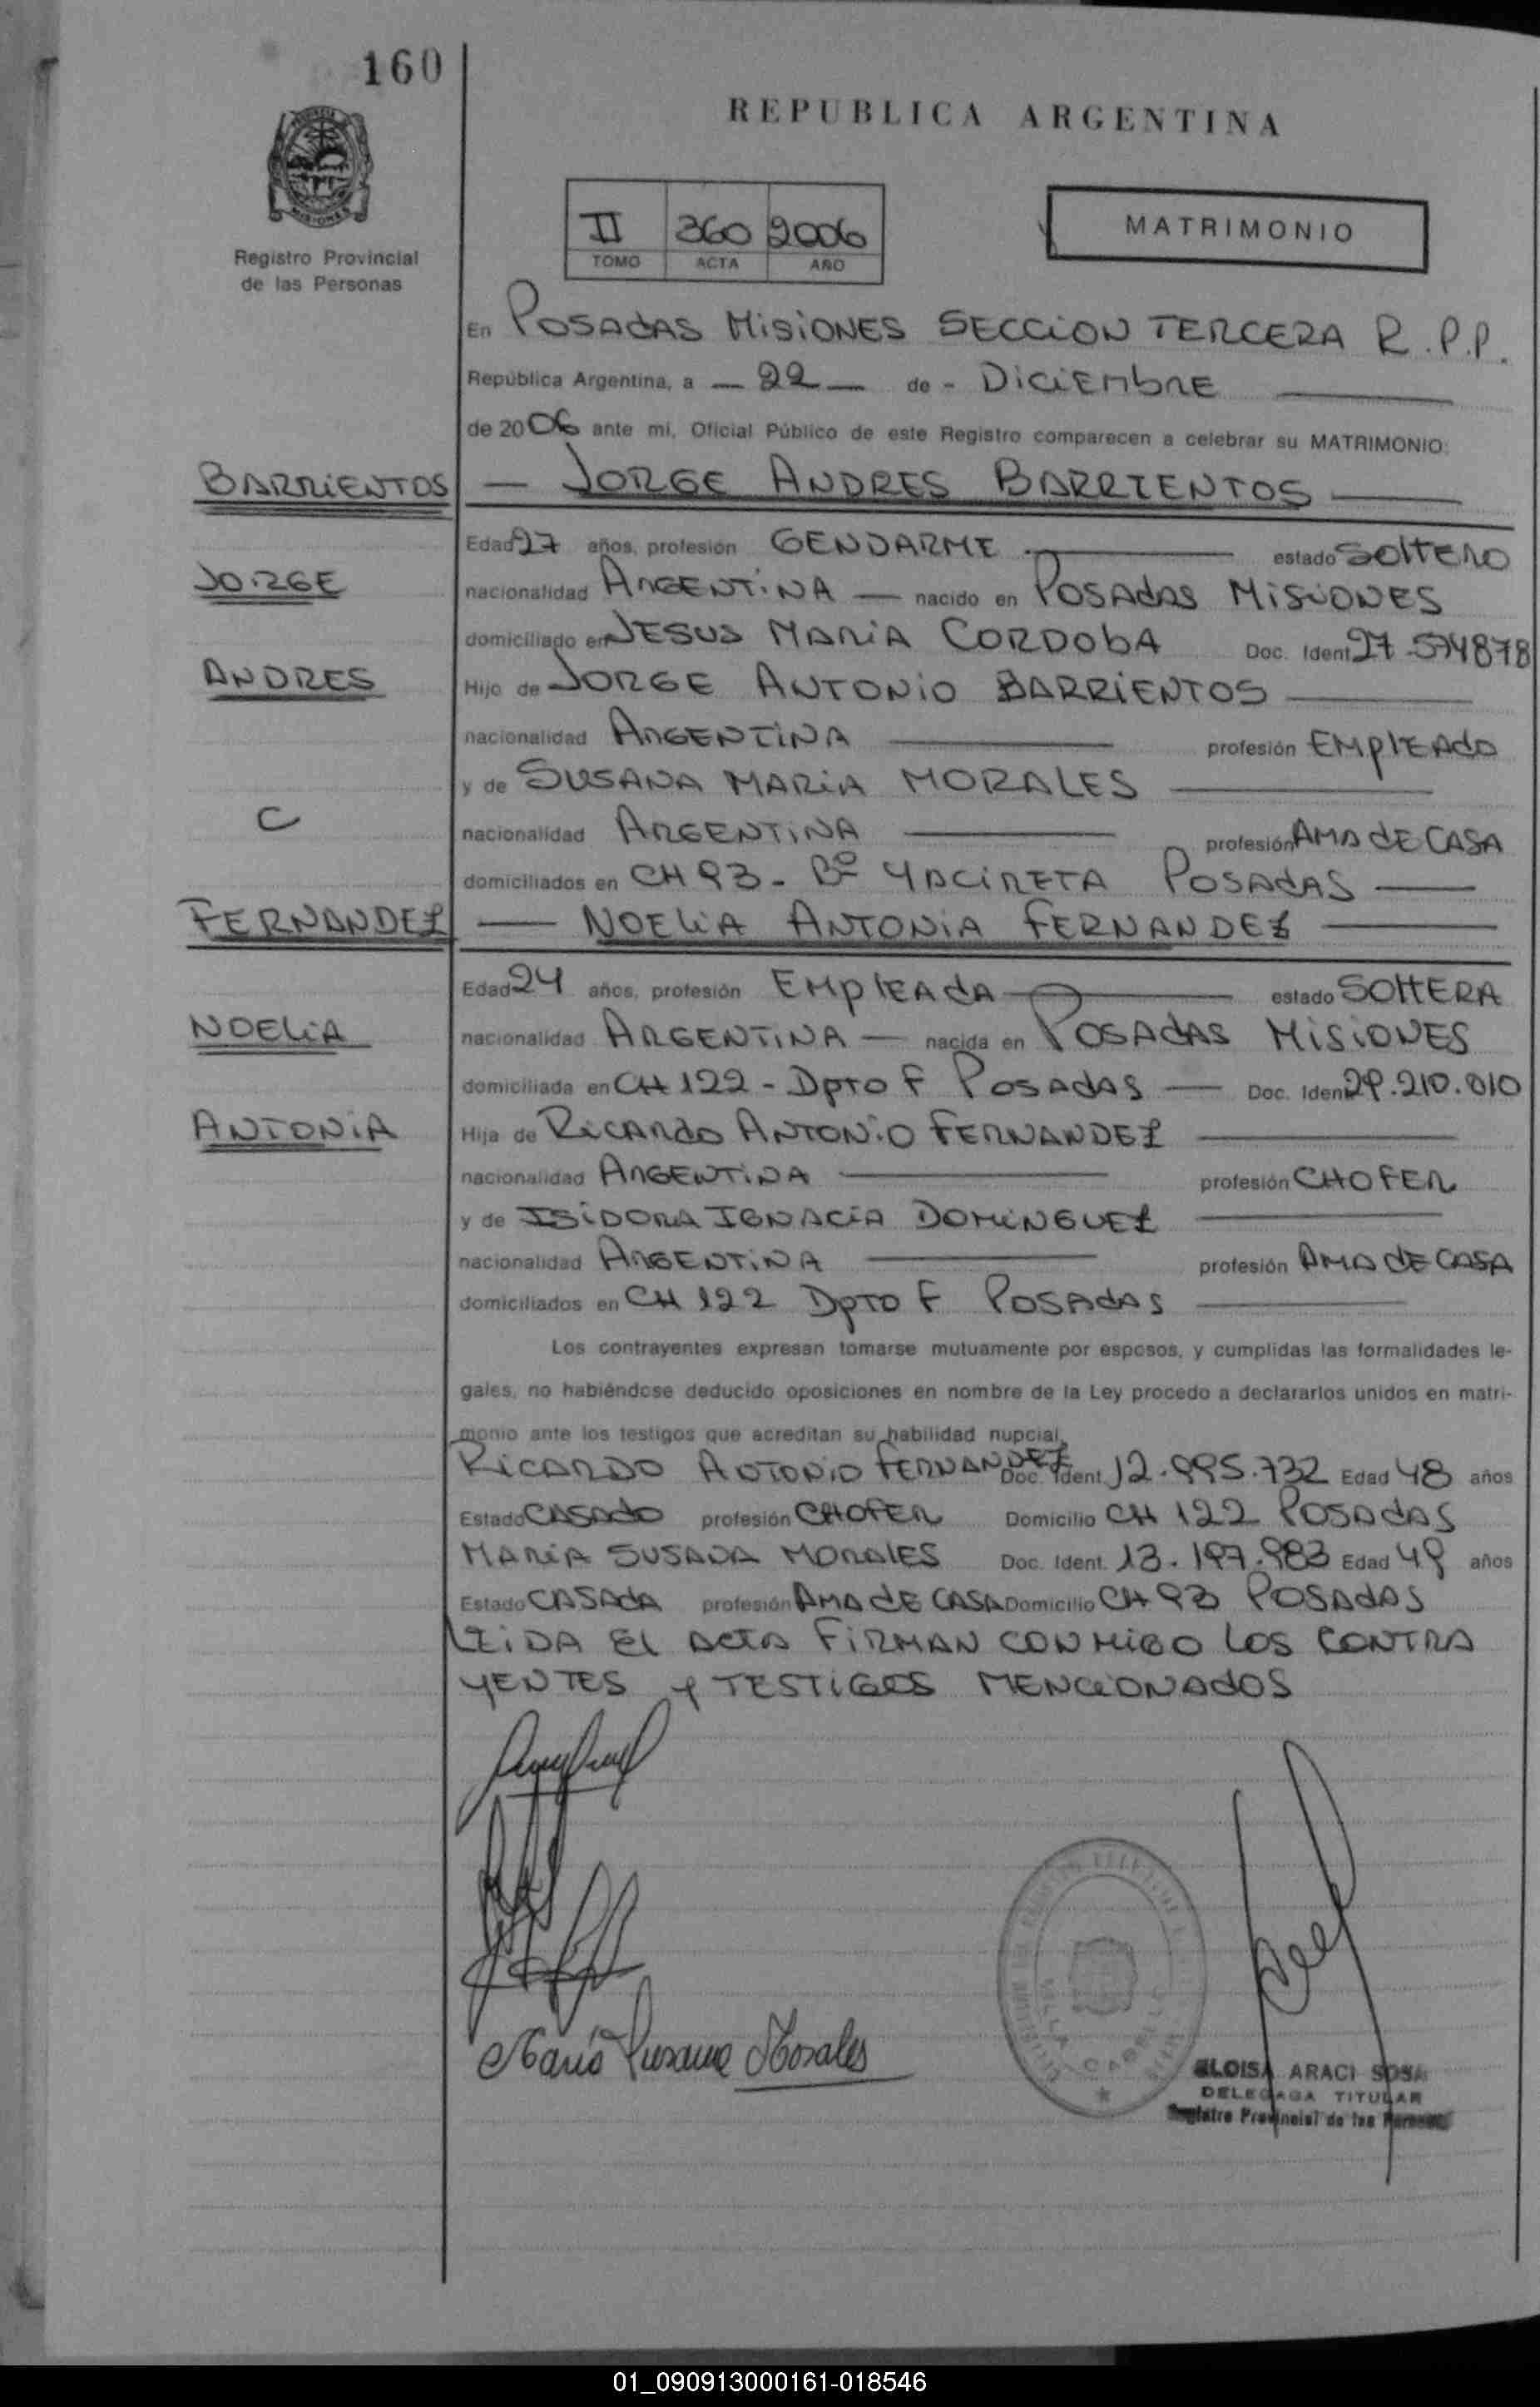 160
REPUBLICA ARGENTINA
MISIONES
Registro Provincial
de las Personas
II 360 2006
TOMO ACTA AÑO
MATRIMONIO
En POSAdAS MISiONES SECCiON TERCERA R.P.P.
República Argentina, a — 22 — de - DiCiEMbRE
de 2006 ante mi, Oficial Público de este Registro comparecen a celebrar su MATRIMONIO:
BARRiENTOS — JORGE ANDRES BARRIENTOS —
Edad 27 años, profesión GENDARME estado SOlTERO
JORGE
nacionalidad ARGENTiNA — nacido en POSAdAS MISiONES
domiciliado en JESUS MARiA CORDObA Doc. Ident. 27.574878
ANDRES
Hijo de JORGE ANTONiO BARRiENTOS
nacionalidad ARGENTiNA profesión EMPlEAdO
y de SUSANA MARiA MORALES
C
nacionalidad ARGENTiNA profesión AMA dE CASA
domiciliados en CH 93 - Bº YACiRETA POSAdAS —
FERNANDEZ — NOELiA ANTONiA FERNANDEZ —
Edad 24 años, profesión EMPlEAdA estado SOlTERA
NOELiA
nacionalidad ARGENTiNA — nacida en POSAdAS MISiONES
domiciliada en CH 122 - DpTO F POSAdAS — Doc. Ident. 29.210.010
ANTONiA
Hija de RiCARdO ANTONiO FERNANDEZ
nacionalidad ARGENTiNA profesión CHOFER
y de ISiDORA IGNACiA DOMiNGUEZ
nacionalidad ARGENTiNA profesión AMA dE CASA
domiciliados en CH 122 DpTO F POSAdAS
Los contrayentes expresan tomarse mutuamente por esposos, y cumplidas las formalidades le-
gales, no habiéndose deducido oposiciones en nombre de la Ley procedo a declararlos unidos en matri-
monio ante los testigos que acreditan su habilidad nupcial.
RiCARDO ANTONiO FERNANDEZ Doc. Ident. 12.995.732 Edad 48 años
Estado CASAdO profesión CHOFER Domicilio CH 122 POSAdAS
MARiA SUSANA MORAlES Doc. Ident. 13.197.983 Edad 49 años
Estado CASAdA profesión AMA dE CASA Domicilio CH 93 POSAdAS
LEiDA El ACTA FiRMAN CONMiGO lOS CONTRA
YENTES y TESTiGOS MENCiONAdOS
María Susana Morales
ELOISA ARACI SOSA
DELEGADA TITULAR
Registro Provincial de las Personas
01_090913000161-018546